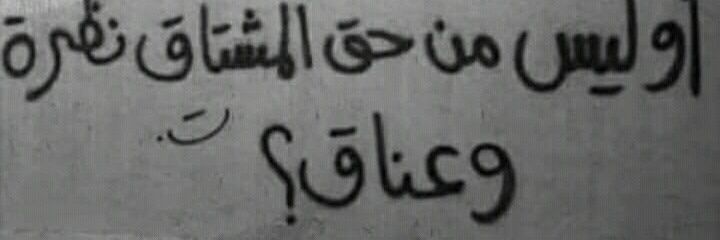 أو ليس من حق المشتاق نظرة
وعناق؟
ت.